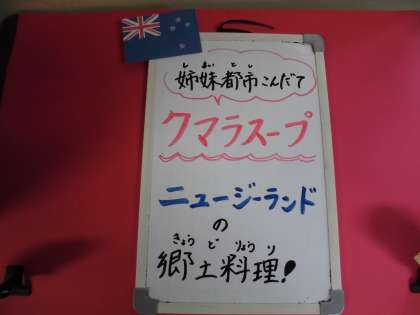 しまいとし
姉妹都市こんだて
クマラスープ
ニュージーランド
の
きょうどりょうり
郷土料理!